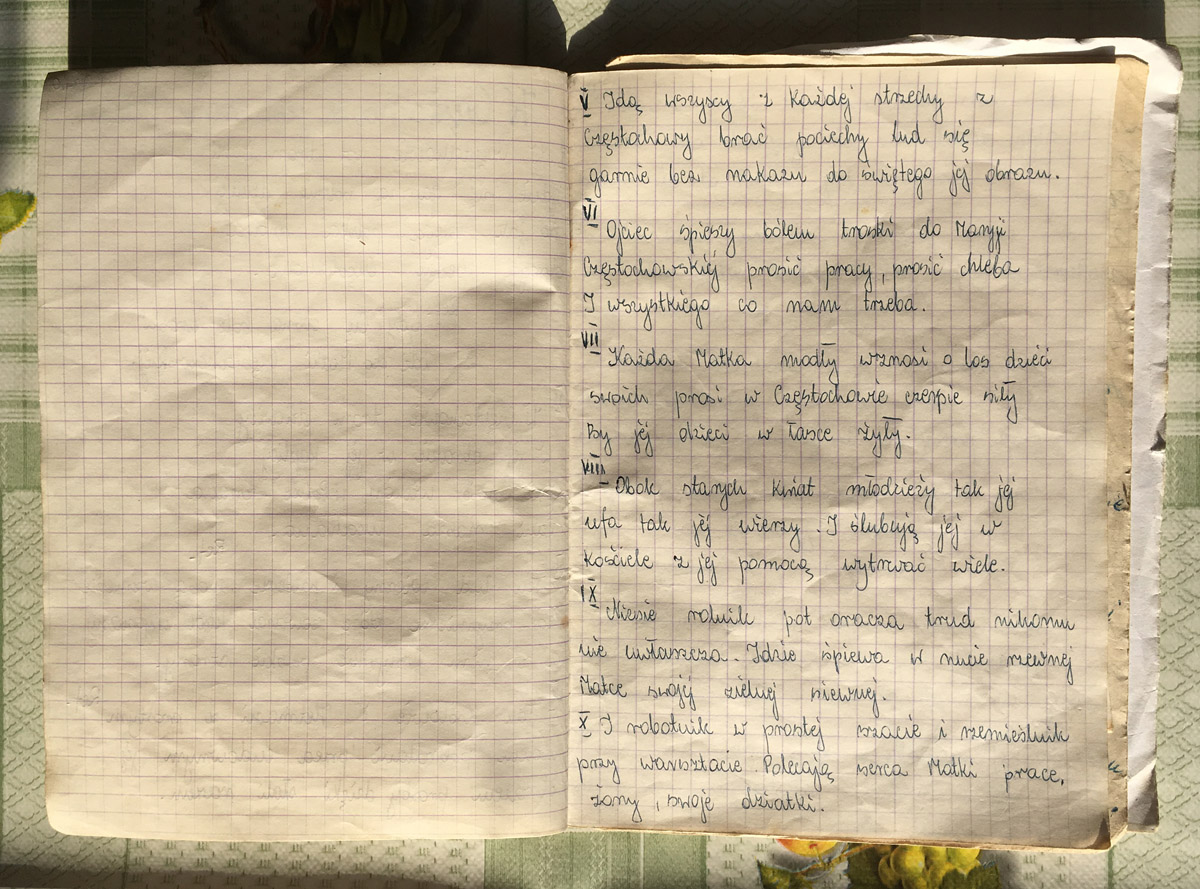 V Idą wszyscy z każdej strzechy z
Częstochowy brać pociechy lud się
garnie bez nakazu do świętego jej obrazu.
VI
Ojciec śpieszy bólem troski do Maryji
Częstochowskiéj prosić pracy, prosić chleba
I wszystkiego co nam trzeba.
VII
Każda Matka modły wznosi o los dzieci
swoich prosi w Częstochowie czerpie siły
By jéj dzieci w łasce żyły.
VIII
Obok starych kwiat młodzieży tak jéj
ufa tak jéj wierzy. I ślubują jej w
kościele z jéj pomocą wytrwać wiele.
IX
Niesie rolnik pot oracza trud nikomu
nie uwłaszcza. Idzie śpiewa w nucie rzewnej
Matce swojéj zielnej siewnej.
X I robotnik w prostej szacie i rzemieślnik
przy warsztacie. Polecają serca Matki prace,
żony, swoje dziatki.